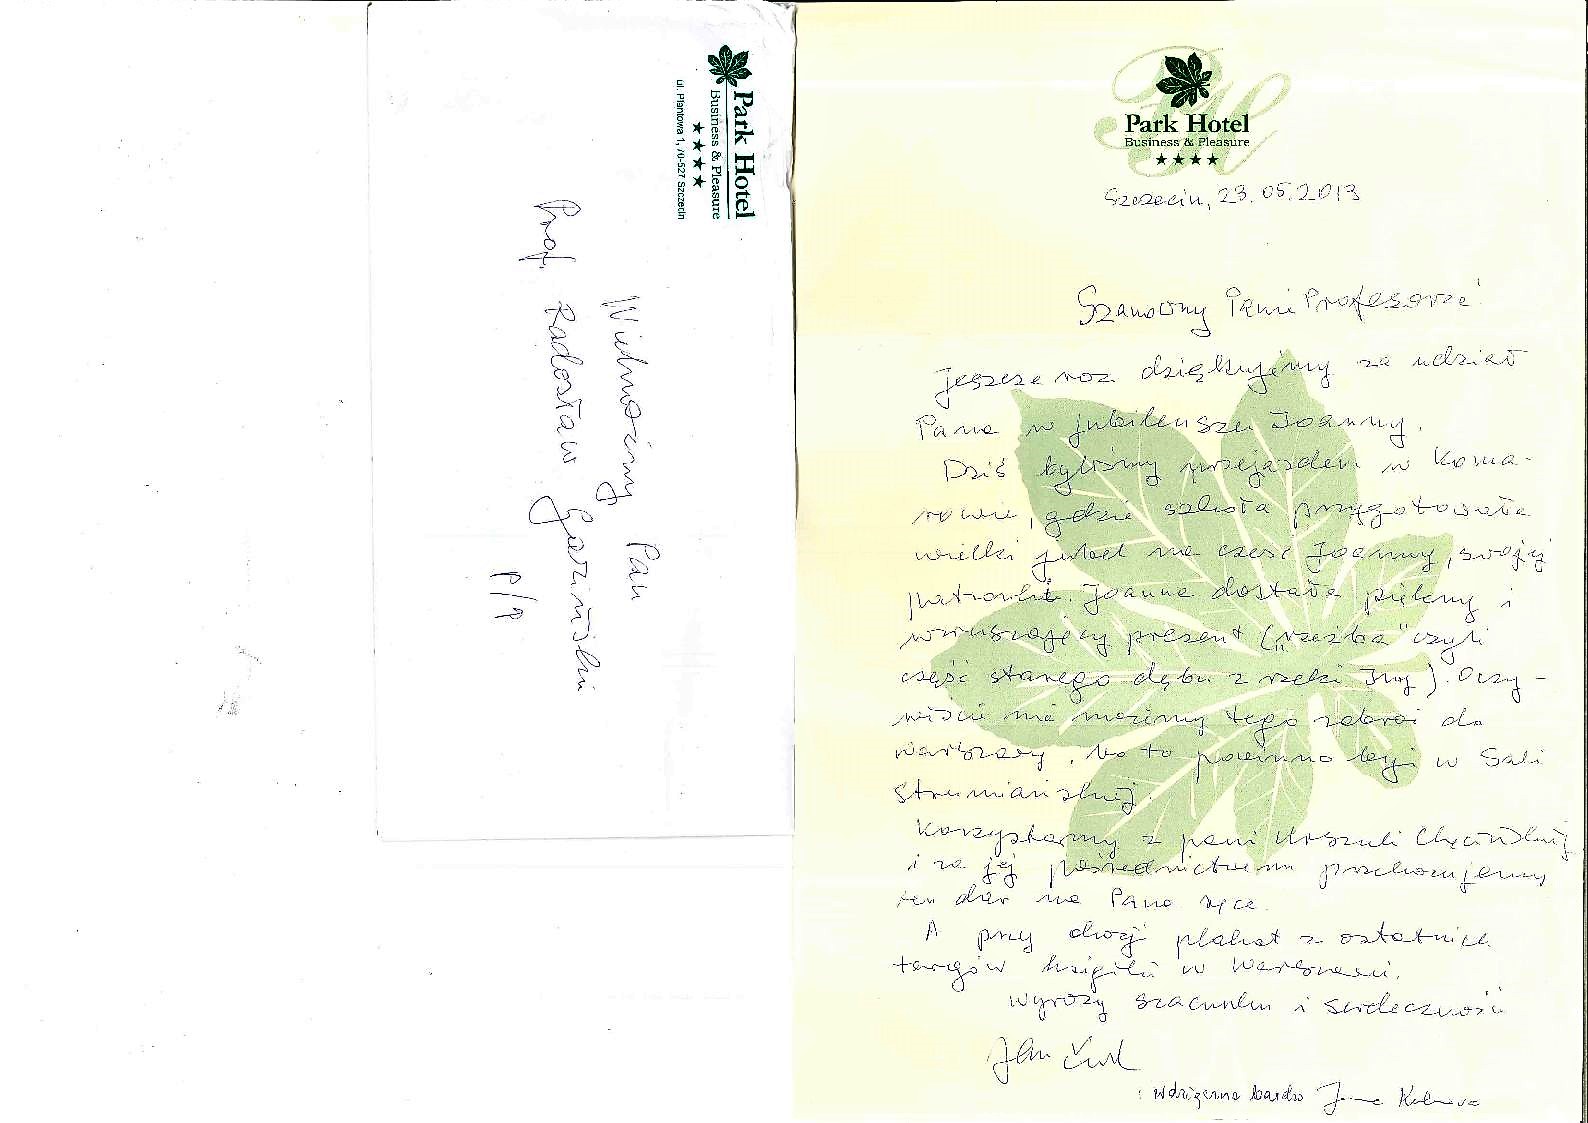 Park Hotel
Business & Pleasure
★★★★
ul. Plantowa 1, 70-527 Szczecin
Wielmożny Pan
Prof. Radosław Gaziński
P/P
Park Hotel
Business & Pleasure
★★★★
Szczecin, 23.05.2013
Szanowny Panie Profesorze!
Jeszcze raz dziękujemy za udział
Pana w jubileuszu Joanny.
Dziś byliśmy przejazdem w Koma-
rowie, gdzie szkoła przygotowała
wielki jubel na cześć Joanny, swojej
patronki. Joanna dostała piękny i
wzruszający prezent („rzeźba" czyli
część starego dębu z rzeki Iny). Oczy-
wiście nie możemy tego zabrać do
Warszawy, bo to powinno być w Sali
Strumiańskiej.
Korzystamy z pani Urszuli
i za jej pośrednictwem przekazujemy
ten dar na Pana ręce.
A przy okazji plakat z ostatnich
targów książki w Warszawie.
Wyrazy szacunku i serdeczności
Jan
wdzięczna bardzo Joanna Kulmowa